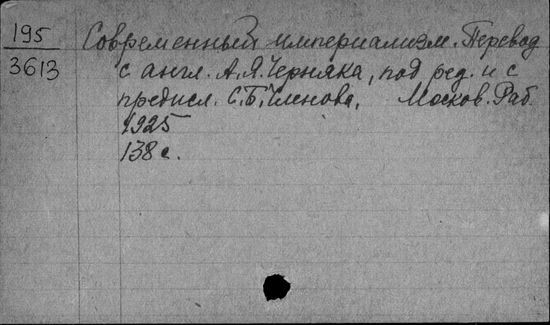 195
3613
Современный империализм. Перевод
с англ. А.Я. Черняка, под ред. и с
предисл. С.Б. Членова. Москов. Раб.
1925
138 с.